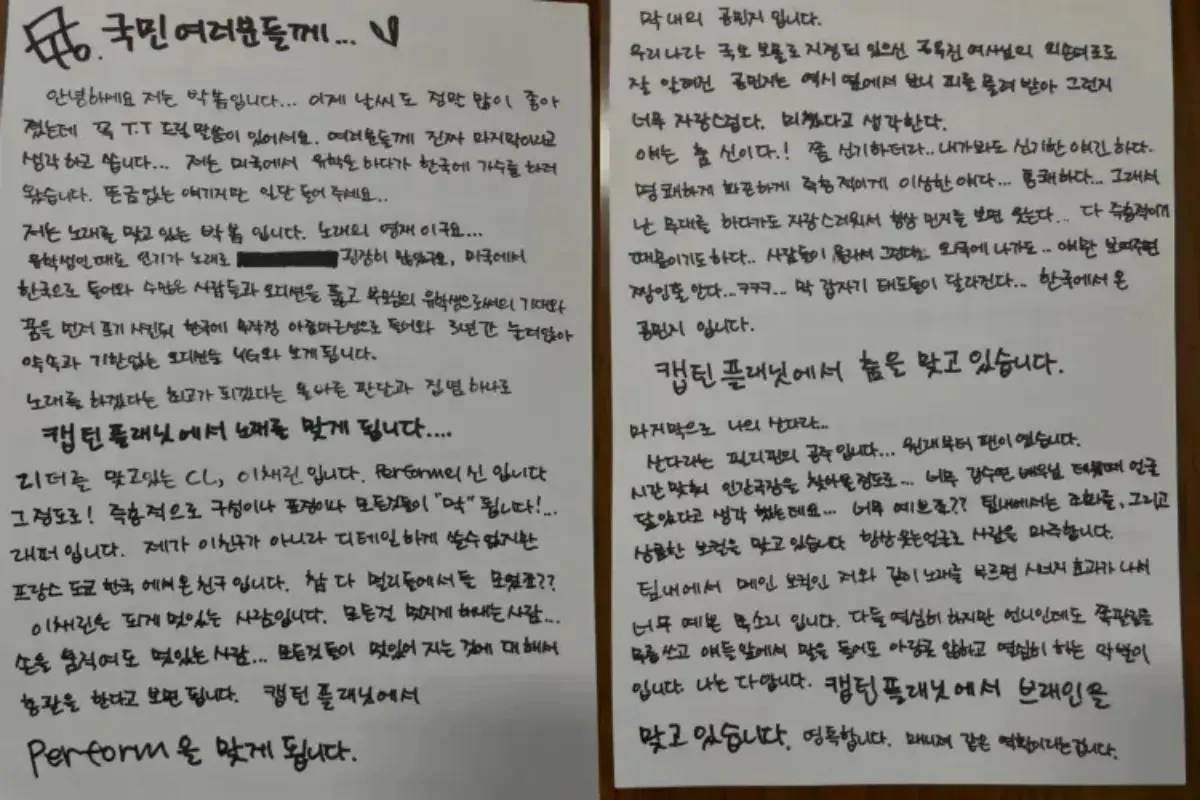 국민여러분들께...
안녕하세요 저는 박봄입니다... 이제 날씨도 정말 많이 좋아
졌는데 꼭 T.T 드릴 말씀이 있어서요. 여러분들께 진짜 마지막이라고
생각하고 씁니다... 저는 미국에서 유학온 하다가 한국에 가수를 하러
왔습니다. 뜬금없는 얘기지만 일단 들어 주세요..
저는 노래를 맞고 있는 박봄 입니다. 노래의 영재 이구요...
유학생인때도 인기가 노래로 굉장히 많았구요, 미국에서
한국으로 들어와 수많은 사람들과 오디션을 뚫고 부모님의 유학생으로써의 기대와
꿈을 먼저 포기 시킨뒤 한국에 무작정 아줌마근성으로 들어와 3년간 눌러앉아
약속과 기한없는 오디션을 YG와 보게됩니다.
노래를 하겠다는 최고가 되겠다는 올바른 판단과 집념 하나로
캡틴플래닛에서 노래를 맞게 됩니다....
리더를 맞고있는 CL, 이채린 입니다. Perform의 신 입니다
그정도로! 즉흥적으로 구성이나 표정이나 모든것들이 "막" 됩니다!...
래퍼입니다. 제가 이친구가 아니라 디테일하게 쓸수없지만
프랑스 도쿄 한국 에서 온 친구 입니다. 참 다 멀리들에서들 모였죠??
이채린은 되게 멋있는 사람입니다. 모든걸 멋지게 해내는 사람...
손을 움직여도 멋있는 사람... 모든것들이 멋있어 지는 것에 대해서
총괄을 한다고 보면 됩니다. 캡틴플래닛에서
Perform을 맞게 됩니다.
막내의 공민지 입니다.
우리나라 국보 보물로 지정되 있으신 공옥진 여사님의 외손녀로도
잘 알려진 공민지는 역시 옆에서 보니 피를 물려 받아 그런지
너무 자랑스럽다. 미쳤다고 생각한다.
얘는 춤 신이다.! 쫌 신기하더라.. 내가봐도 신기한 애긴 하다.
명쾌하게 화끈하게 즉흥적이게 이상한 애다... 통쾌하다... 그래서
난 무대를 하다가도 자랑스러워서 항상 민지를 보면 웃는다... 다 즉흥적이기
때문이기도 하다.. 사람들이 몰라서 그런다. 외국에 나가도.. 얘만 보여주면
짱인줄 안다...ㅋㅋㅋ... 막 갑자기 태도들이 달라진다... 한국에서 온
공민지 입니다.
캡틴플래닛에서 춤을 맞고 있습니다.
마지막으로 나의 산다라...
산다라는 필리핀의 공주입니다... 원래부터 팬이였습니다.
시간 맞춰 인간극장을 찾아볼정도로... 너무 강수연 배우님 데뷔때 얼굴
닮았다고 생각 했는데요... 너무 예쁘죠?? 팀내에서는 조화를, 그리고
상큼한 보컬을 맞고 있습니다 항상웃는얼굴로 사람을 마주합니다.
팀내에서 메인 보컬인 저와 같이 노래를 부르면 시너지 효과가 나서
너무 예쁜 목소리 입니다. 다들 열심히 하지만 언니인데도 쪽팔림을
무릅쓰고 애들앞에서 말을 들어도 아랑곳 않하고 열심히 하는 악발이
입니다. 나는 다 압니다. 캡틴플래닛에서 브레인을
맞고 있습니다. 영특합니다. 매니져 같은 역할이라는겁니다.